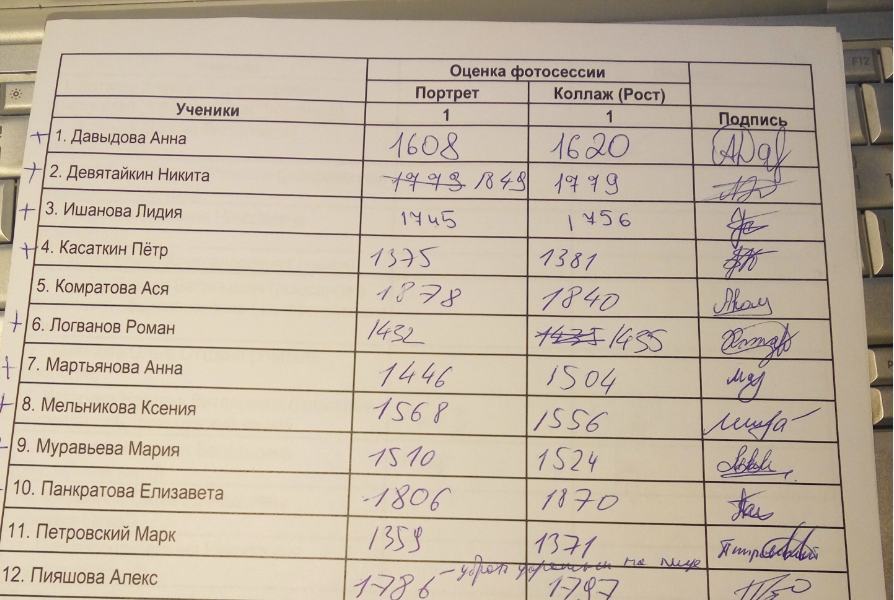 Оценка фотосессии
Ученики Портрет Коллаж (Рост) Подпись
1 1
+ 1. Давыдова Анна 1608 1620
+ 2. Девятайкин Никита 1779 1849 1779
+ 3. Ишанова Лидия 1745 1756
+ 4. Касаткин Пётр 1375 1381
5. Комратова Ася 1878 1840
+ 6. Логванов Роман 1432 1435 1435
+ 7. Мартьянова Анна 1446 1504
+ 8. Мельникова Ксения 1568 1556
9. Муравьева Мария 1510 1524
10. Панкратова Елизавета 1806 1870
11. Петровский Марк 1359 1371
12. Пияшова Алекс 1786 - убрать на лице 1797
F12